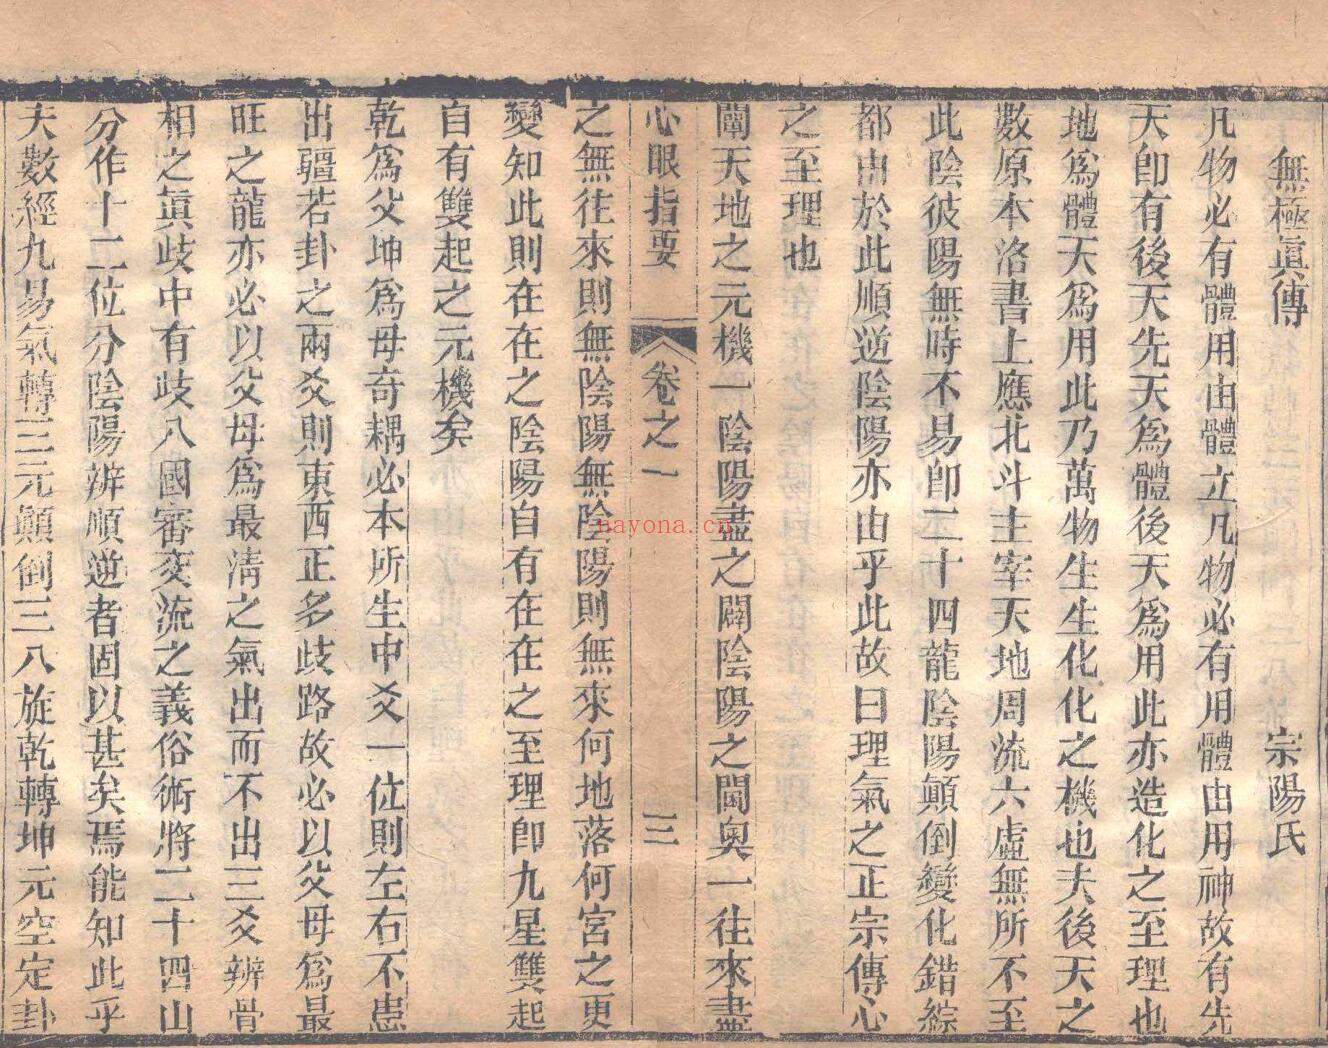 無極眞傳 宗陽氏
凡物必有體用由體立凡物必有用體由用神故有先
天卽有後天先天爲體後天爲用此亦造化之至理也
地爲體天爲用此乃萬物生生化化之機也夫後天之
數原本洛書上應北斗主宰天地周流六虛無所不至
此陰彼陽無時不易卽二十四龍陰陽顚倒變化錯綜
都由於此順逆陰陽亦由乎此故曰理氣之正宗傳心
之至理也
闡天地之元機一陰陽盡之闢陰陽之閫奧一往來盡
心眼指要 卷之一 三
之無往來則無陰陽無陰陽則無來何地落何宮之更
變知此則在在之陰陽自有在在之至理卽九星雙起
自有雙起之元機矣
乾爲父坤爲母奇耦必本所生中爻一位則左右不患
出疆若卦之兩爻則東西正多歧路故必以父母爲最
旺之龍亦必以父母爲最清之氣出而不出三爻辨骨
相之眞歧中有歧八國審交流之義俗術將二十四山
分作十二位分陰陽辨順逆者固以甚矣焉能知此乎
夫數經九易氣轉三元顚倒三八旋乾轉坤元空定卦
nayona.cn